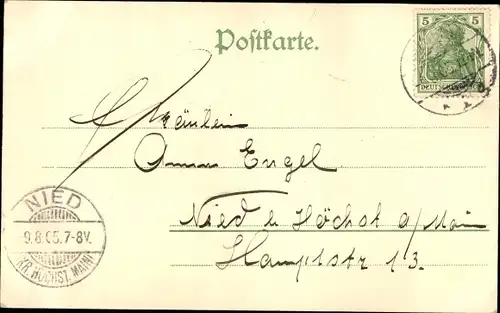 5 5
DEUTSCHES REICH
Postkarte.
Fräulein
Anna Engel
Nied b Höchst a/Main
Hauptstr 13.
NIED
9.8.05.7-8V.
(KR. HÖCHST, MAIN)